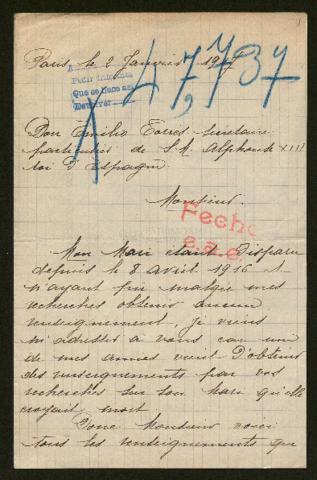 Paris, le 2 Janvier 1917
47,737
Pedir informes
Que se hace así
X
Don Emilio Torres secrétaire
particulier de S.M. Alphonse XIII
roi d'Espagne
Monsieur.
Fecho
Mon Mari étant Disparu
depuis le 8 avril 1916 et
n'ayant pu malgré mes
recherches obtenir aucun
renseignement, je viens
m'adresser à vous, car un
de mes amies vient d'obtenir
des renseignements par vos
recherches sur son Mari qu'elle
croyait mort.
Donc Monsieur voici
tous les renseignements que